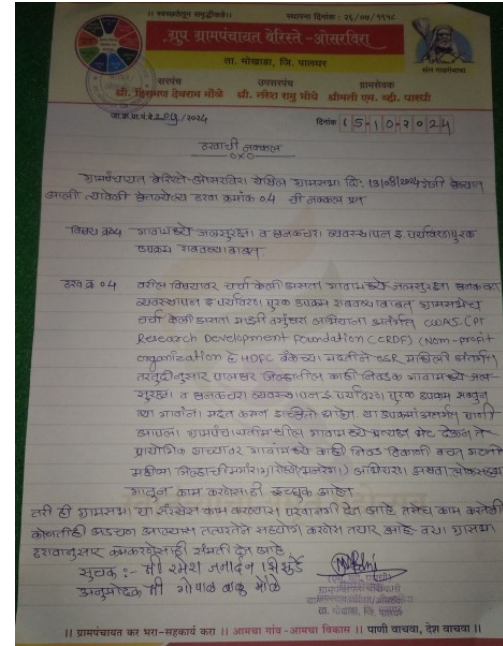 ।। स्वच्छतेतून समृद्धीकडे ।। स्थापना दिनांक : २६/०७/१९९८
ग्रुप ग्रामपंचायत बेरिस्ते - ओसरविरा
ता. मोखाडा, जि. पालघर
संत गाडगेबाबा
सरपंच उपसरपंच ग्रामसेवक
श्री. हिरामण देवराम मोंळे श्री. नरेश रामु भोये श्रीमती एम. व्ही. पारधी
/2024 दिनांक 15-10-2024
ठरावाची नक्कल
ग्रामपंचायत बेरिस्ते-ओसरविरा येथिल ग्रामसभा दि: रोजी घेण्यात
आली त्यावेळी घेतलेल्या ठराव क्रमांक 04 ची नक्कल प्रत
विषय क्र04 गावामध्ये जलसुरक्षा व घनकचरा व्यवस्थापन इ पर्यावरणपुरक
उपक्रम राबवण्याबाबत
ठराव क्र 04 वरील विषयावर चर्चा केली असता गावामध्ये जलसुरक्षा घनकचरा
व्यवस्थापन इ पर्यावरण पुरक उपक्रम राबवण्याबाबत ग्रामसभेत
चर्चा केली असता माझी वसुंधरा अभियाना अंतर्गत CWAS-CPT
Research Development Foundation (CRDF) (Non-profit
organization हे HDFC बँकेच्या मदतीने CSR अंतर्गत
तरतुदीनुसार पालघर जिल्ह्यातील काही निवडक गावामध्ये जल-
सुरक्षा व घनकचरा व्यवस्थापन इ पर्यावरण पुरक उपक्रम
त्या गावांना मदत करून इच्छितो आहेत या उपक्रमांअंतर्गत त्यांनी
आपल्या ग्रामपंचायतीमधील गावामध्ये प्रत्यक्ष भेट देऊन ते
प्रायोगिक तत्वावर गावांमध्ये काही निवड ठिकाणी बचत गटाची
महिला अथवा
मधून काम करणेसाठी इच्छुक आहेत
तरी ही ग्रामसभा या संस्थेस काम करण्यास परवानगी देत आहे तसेच काम करतेवेळी
कोणतीही अडचण आल्यास तत्परतेने सहयोग करणेस तयार आहे- तसा ग्रामसभा
ठरावानुसार कामकरणेसाठी संमती देत आहे
सुचक :- श्री रमेश जनार्दन
अनुमोदक श्री गोपाळ बाबु मोळे
ता. मोखाडा, जि. पालघर
।। ग्रामपंचायत कर भरा-सहकार्य करा ।। आमचा गांव - आमचा विकास ।। पाणी वाचवा, देश वाचवा ।।